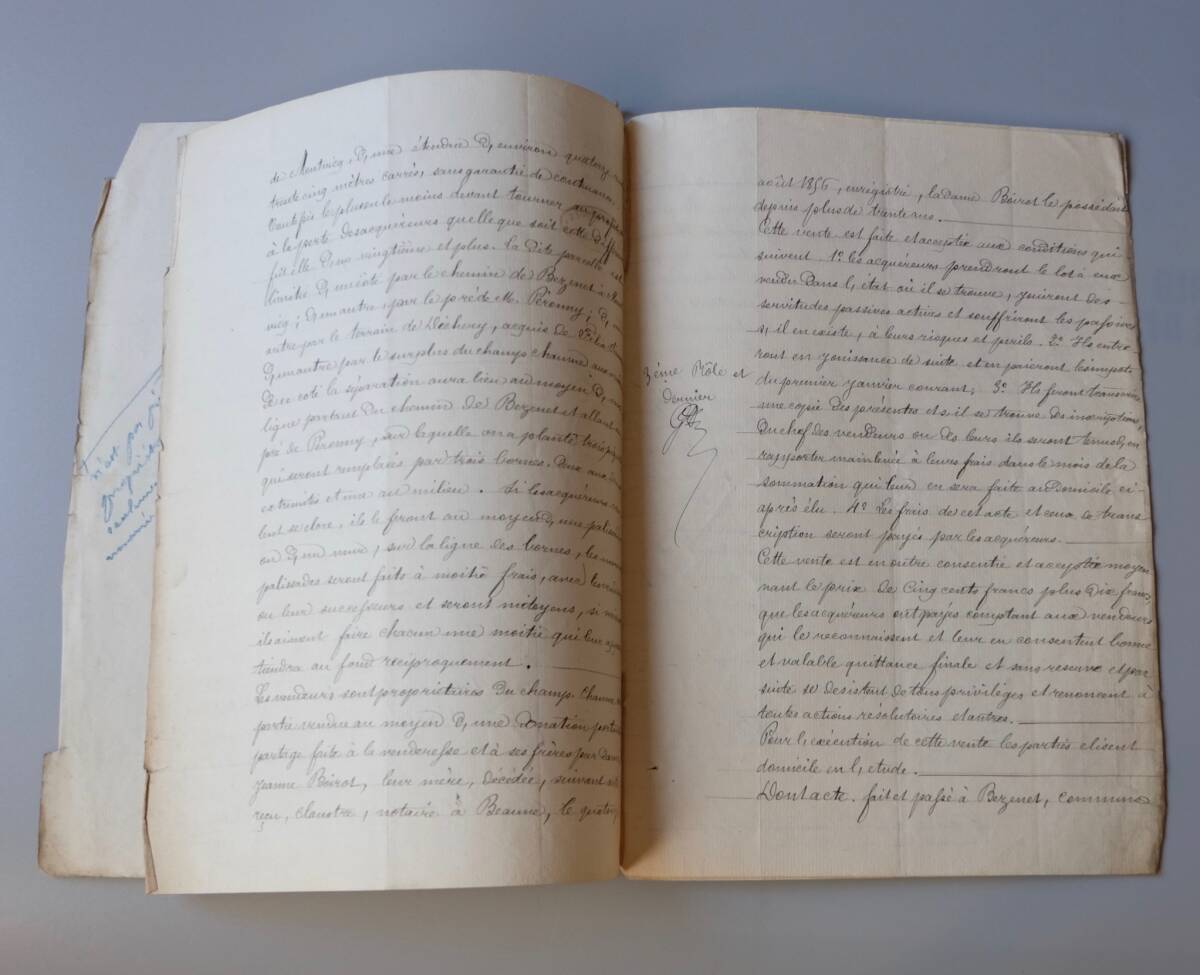 de Montvicq, d'une étendue d'environ quatorze
trente cinq mètres carrés, sans garantie de contenance
toutefois le plus ou le moins devant tourner au profit
à la perte des acquéreurs quelle que soit cette diff
fut elle d'un vingtième et plus. La dite parcelle est
limitée d'un côté par le chemin de Bezenet à
vicq; d'un autre, par le pré de M. Péronny; d'un
autre par le terrain de Déchery, acquis de
d'un autre par le surplus du champs chaume aux
De ce coté la séparation aura lieu au moyen d'une
ligne partant du chemin de Bezenet et allant au
pré de Péronny, sur laquelle on a planté trois
qui seront remplacés par trois bornes. Deux aux
extrémités et une au milieu. Si les acquéreurs
lent se clore, ils le feront au moyen d'une palissade
ou d'un mur, sur la ligne des bornes, les murs
palissades seront faits à moitié frais, avec
ou leur successeurs et seront mitoyens, si mieux
ils aiment faire chacun une moitié qui leur appar
tiendra au fond réciproquement.
Les vendeurs sont propriétaires du champs Chaume
partie vendue au moyen d'une donation portant
partage faite à la venderesse et à ses frères par dame
Jeanne Boirot, leur mère, décédée, suivant acte
reçu, Claustre, notaire à Beaune, le quatorze
n'est pas
3ème Rôle et
dernier
août 1856, enregistré, la Dame Boirot le possédait
depuis plus de trente ans.
Cette vente est faite et acceptée aux conditions qui
suivent. 1º les acquéreurs prendront le lot à eux
vendu dans l'état où il se trouve, jouiront des
servitudes passives actives et souffriront les passives
s'il en existe, à leurs risques et périls. 2º Ils entre
ront en jouissance de suite et en paieront les impots
du premier janvier courant; 3º Ils feront transcrire
une copie des présentes et s'il se trouve des inscriptions
du chef des vendeurs ou des leurs ils seront tenus d'en
rapporter mainlevée à leurs frais dans le mois de la
sommation qui leur en sera faite au domicile ci-
après élu. 4º Les frais de cet acte et ceux de trans
cription seront payés par les acquéreurs.
Cette vente est en outre consentie et acceptée moyen
nant le prix de Cinq cents francs plus dix francs,
que les acquéreurs ont payés comptant aux vendeurs
qui le reconnaissent et leur en consentent bonne
et valable quittance finale et sans reserve et par
suite se desistent de tous privilèges et renoncent à
toutes actions résolutoires et autres.
Pour l'exécution de cette vente les parties elisent
domicile en l'etude.
Dont acte. fait et passé à Bezenet, commune